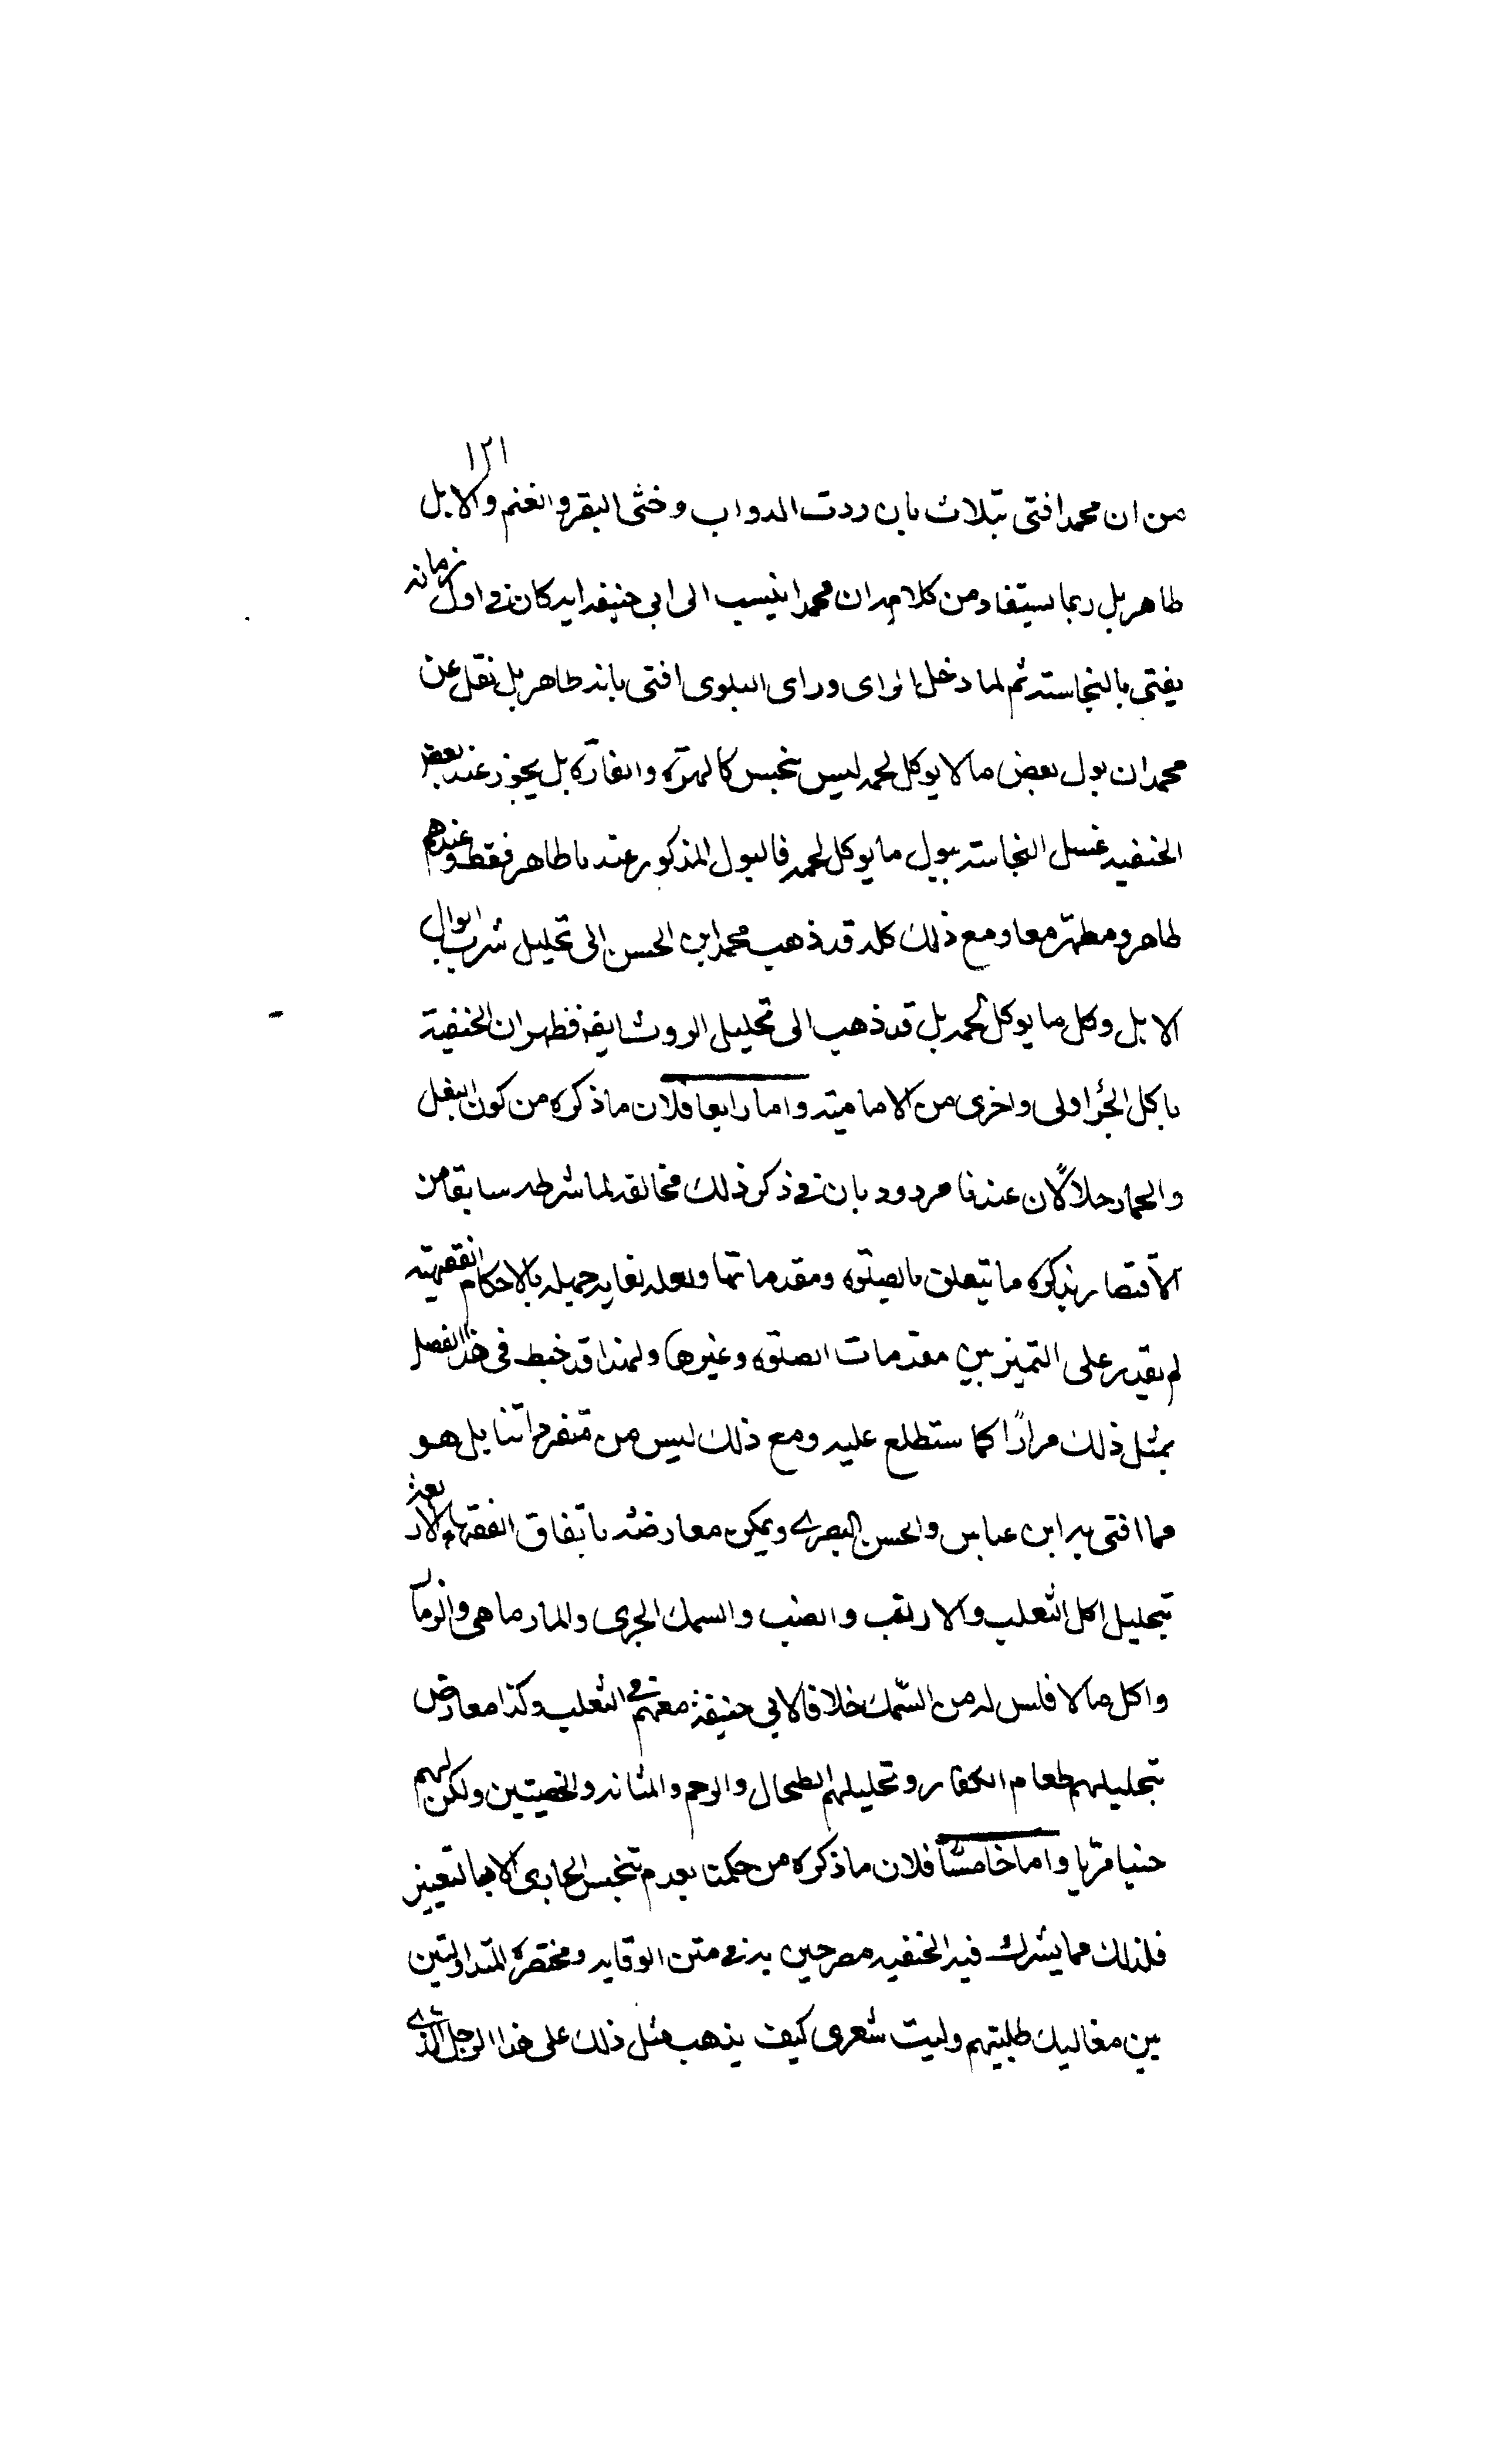 ١٢١
من ان محمدا افتى بثلاث بان روث الدواب وخثى البقر والغنم والابل
طاهر بل ربما يستفاد من كلامه ان محمدا ينسب الى ابي حنيفه انه كان في اول زمانه
يفتى بالنجاسة ثم لما دخل الراى وراى البلوى افتى بانه طاهر بل نقل عن
محمد ان بول بعض ما لا يوكل لحمه ليس بنجس كالهرّة والفأرة بل يجوز عند بعض
الحنفيه غسل النجاسة ببول ما يوكل لحمه فالبول المذكور عندنا طاهر فقط وعندهم
طاهر ومطهّر معا ومع ذلك كله قد ذهب محمد ابن الحسن الى تحليل شرب ابوال
الابل وكل ما يوكل لحمه بل قد ذهب الى تحليل الروث ايضه فظهر ان الحنفية
باكل الخرء اولى واخرى من الاماميته واما رابعا فلان ما ذكره من كون البغل
والحمار حلالًا عندنا مردود بان في ذكر ذلك مخالفه لما شرطه سابقا من
الاقتصار بذكره ما يتعلق بالصلوة ومقدماتها ولعله لغايه جهله بالاحكام الفقهيته
لم يقدر على التميز بين مقدمات الصلوة وغيرها ولهذا قد خبط في هذا الفصل
بمثل ذلك مرارًا كما ستطلع عليه ومع ذلك ليس من متفرداتنا بل هو
مما افتى به ابن عباس والحسن البصرے ويمكن معارضته باتفاق الفقهاء الاربعة
بتحليل اكل الثعلب والارنب والضب والسمك الجرى والمار ماهى والزمار
واكل ما لا فلس له من السّمك خلافا لابي حنيفة معهم في الثعلب وكذا معارض
بتحليلهم طعام الكفار وتحليلهم الطحال والرحم والمثانه والخصيتين وليكن لهم
هنيا مرّيا واما خامسًا فلان ما ذكره من حكمنا بعدم تنجس الجارى الا بالتغير
فلذلك مما يشرك فيه الحنفيه مصرحين به في متن الوقايه ومختصره المتداولتين
بين مغاليك طلبتهم وليت شعرى كيف يذهب مثل ذلك على هذا الرجل الذے